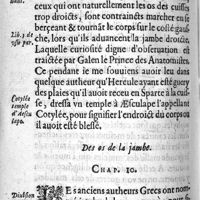 ceux qui ont naturellement les os des cuisses
trop droicts, sont contraincts marcher en se
berçeans & tournãt le corps sur le costé gauche, lors qu'ils aduancent la iambe droicte.
Lib. 3. de
Laquelle curiosité digne d'obseruation est
traictée par Galen le Prince des Anatomistes.
Ce pendant ie me souuiens auoir leu en
quelque autheur qu'Hercule ayant esté guery
des plaies qu'il auoit receu en Sparte à la cuisse, dressa vn temple à Æsculape l'appellant
Cotylée, pour signifier l'endroict du corps où
il auoit esté blessé.
Cotylée
temple
Des os de la iambe.
CHAP. 10.
Diuision
ES anciens autheurs Grecs ont nom-